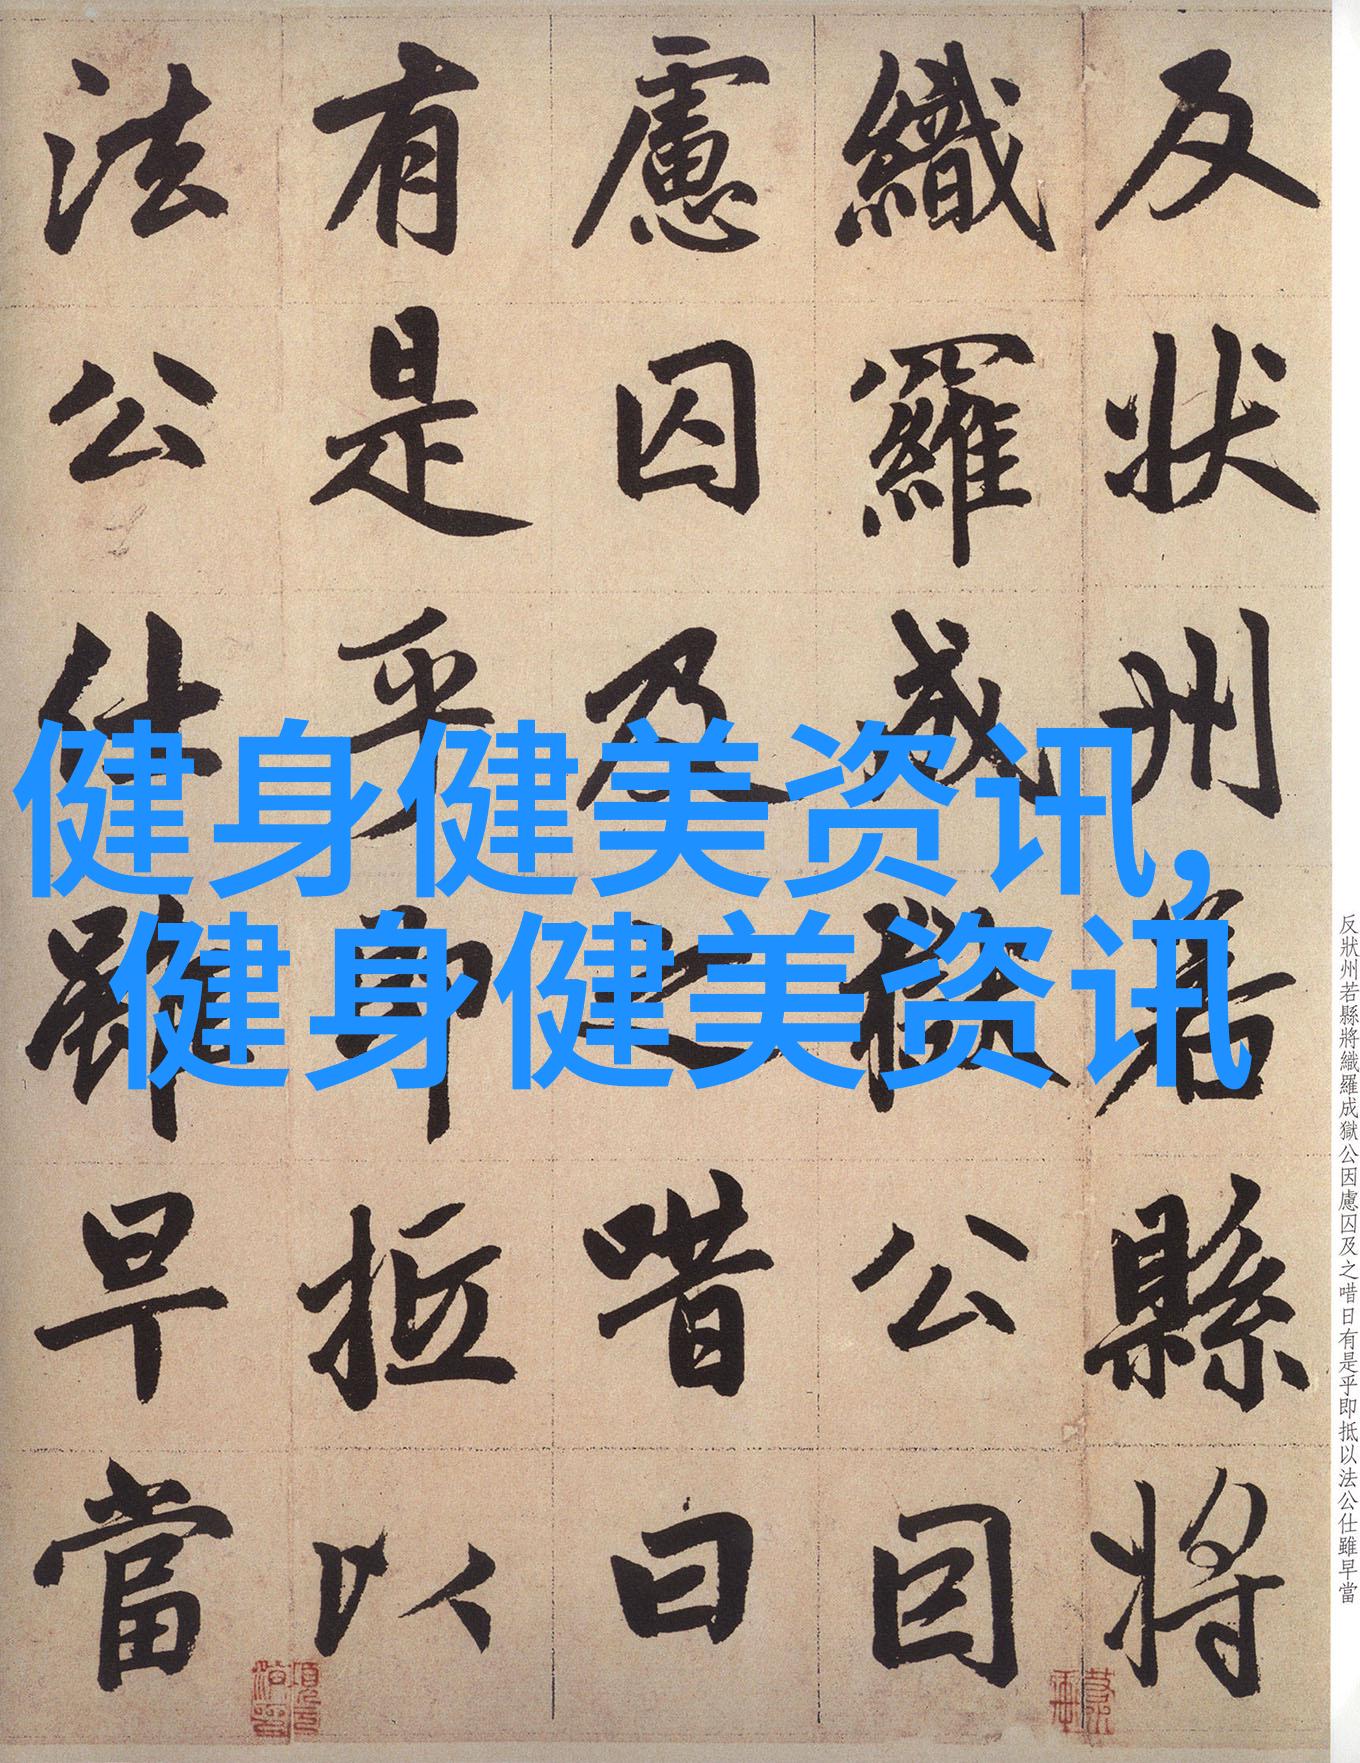 反状州若縣将
織羅成獄公因
慮囚及之唶曰
有是乎即抵以
法公仕雖早當
健身健美资讯,
健身健美资讯
反狀州若縣將織羅成獄公因慮囚及之唶日有是乎即抵以法公仕雖早當